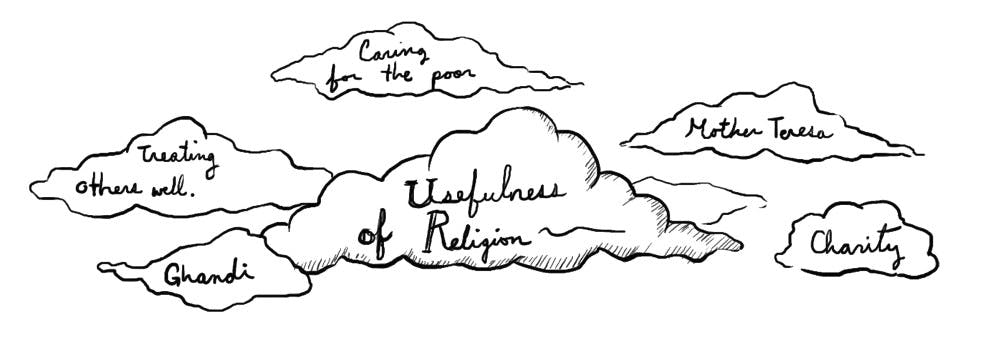 Caring
for the poor
Mother Teresa
Treating
others well.
Usefulness
of Religion
Charity
Ghandi